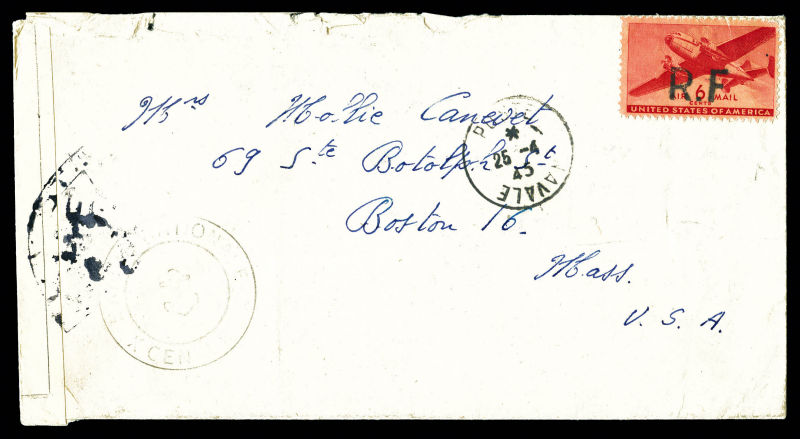 R F
AIR 6 MAIL
CENTS
UNITED STATES OF AMERICA
Mrs Mollie Canevet
69 Ste Botolph St
Boston 16.
Mass.
U. S. A.
*
25 -4
45
NAVALE